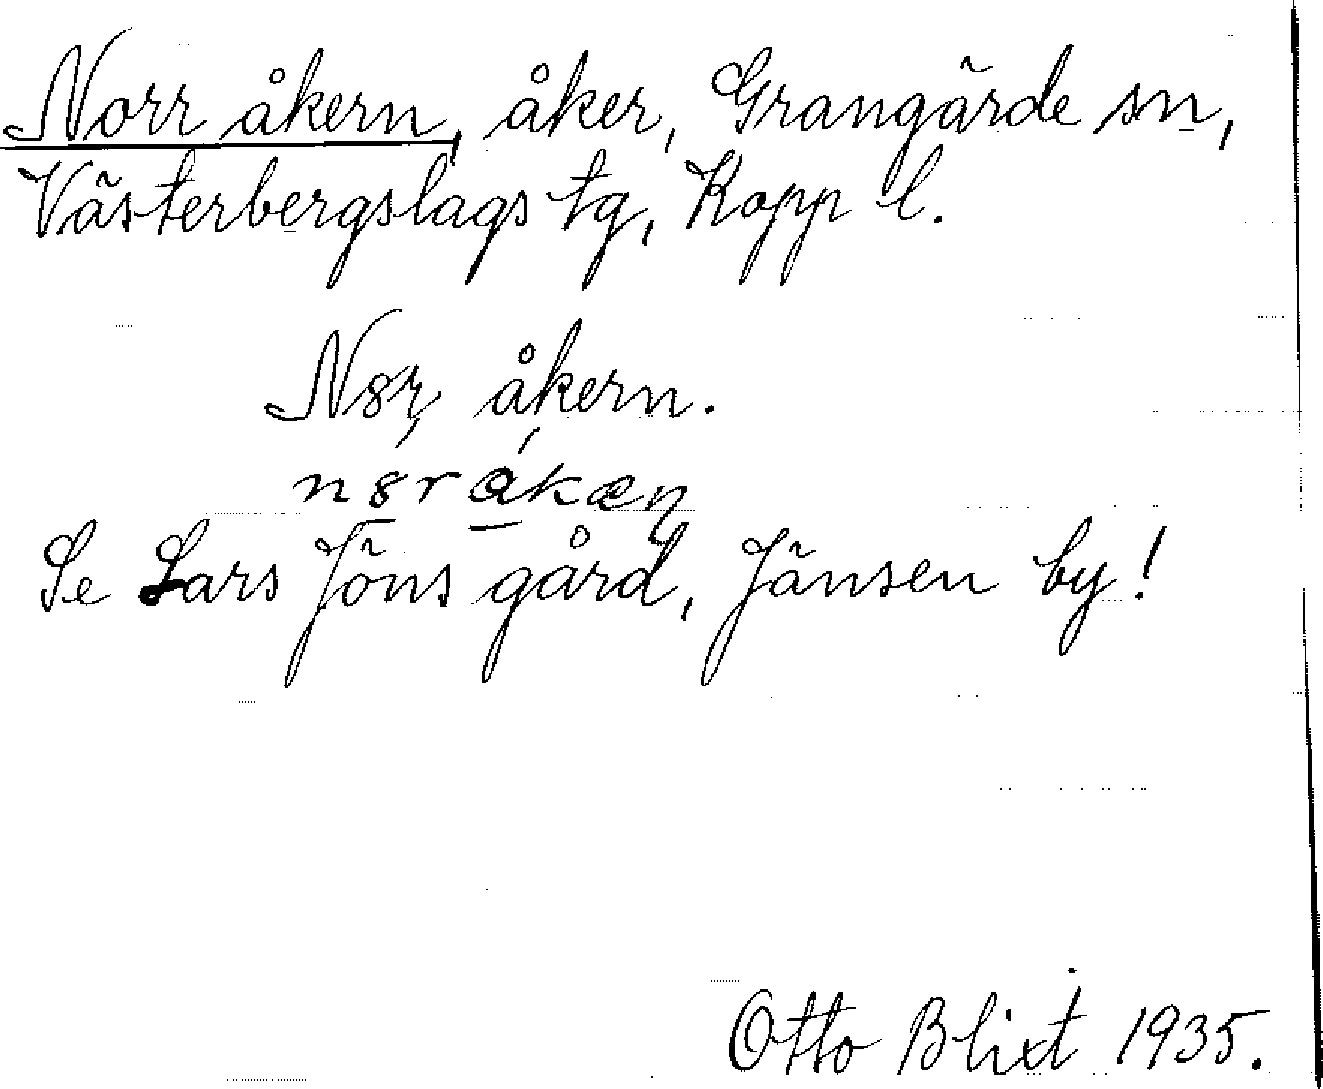 Norr åkern, åker, Grangärde sn,
Västerbergslags tg, Kopp l.
N8r, åkern.
n8råkæn
Se Lars Jöns gård, Jänsen by!
Otto Blixt 1935.